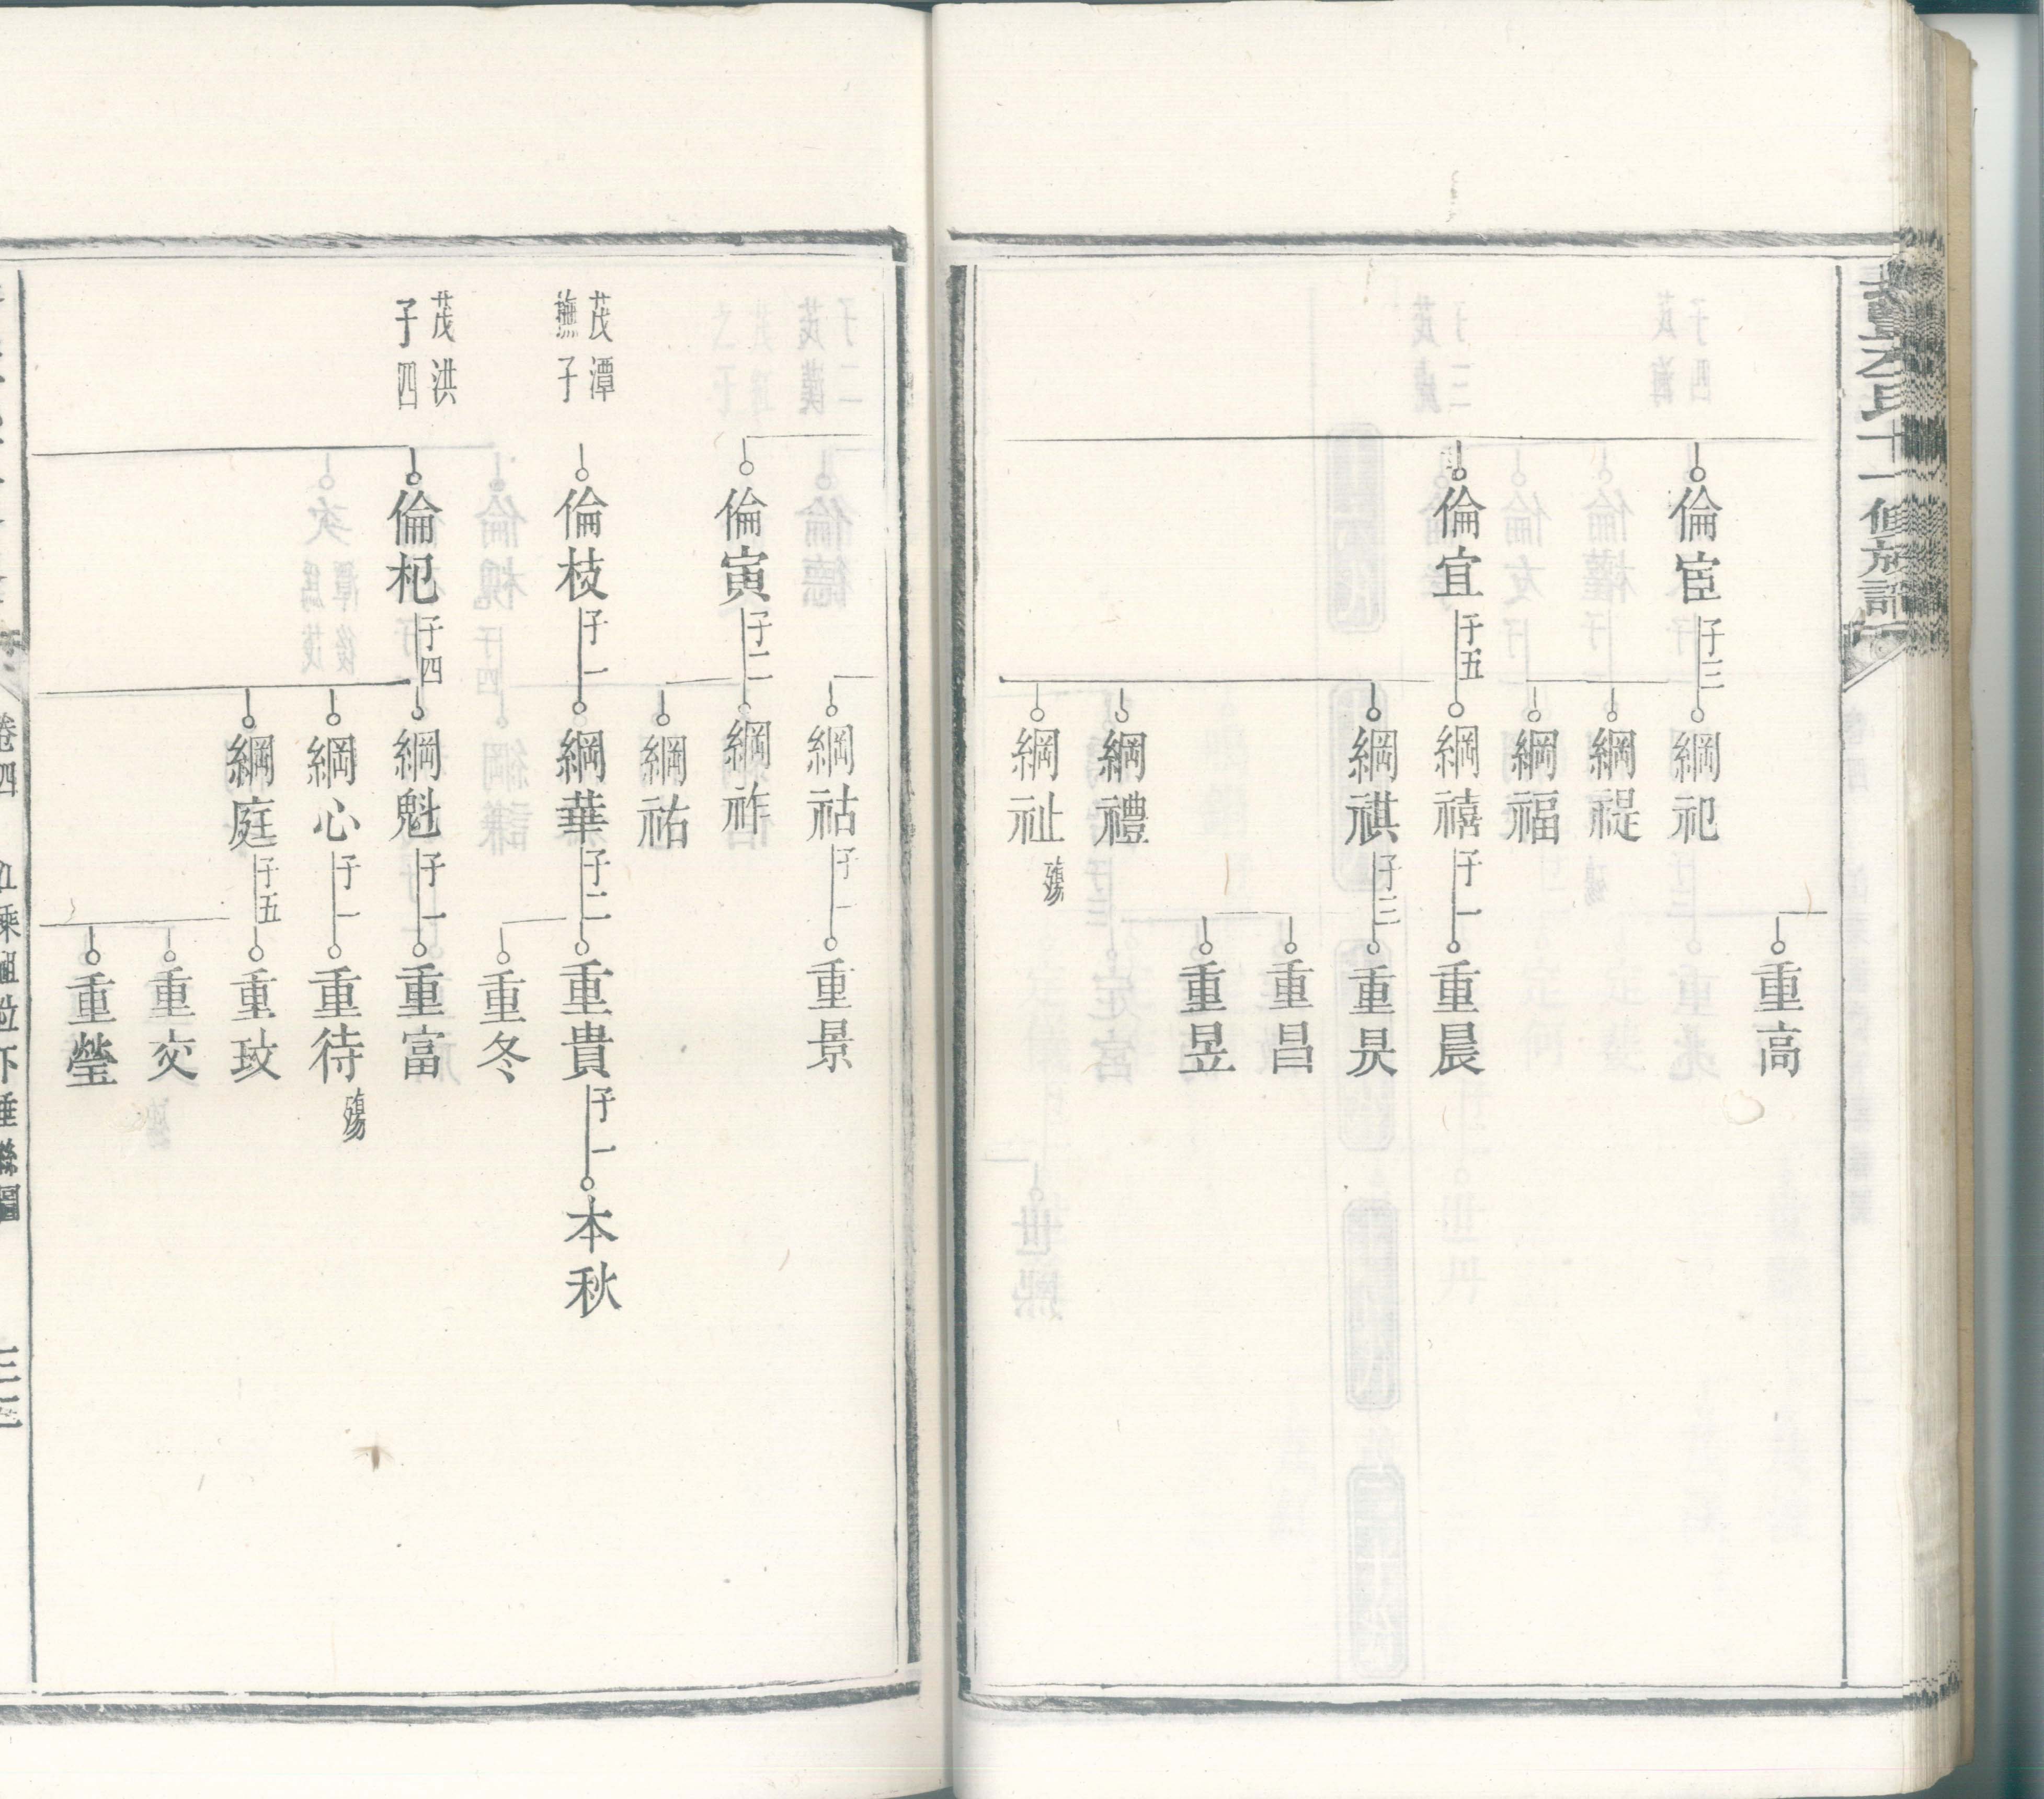 氏十一修族譜
重高
倫宦 子三
綱祀
綱禔
綱福
倫宜 子五
綱禧 子一
重晨
綱祺 子三
重昊
重昌
重昱
綱禮
綱祉 殤
綱祜 子一
重景
倫寅 子二
綱祚
綱祐
茂潭
撫子
倫枝 子一
綱華 子二
重貴 子一
本秋
重冬
茂洪
子四
倫杞 子四
綱魁 子一
重富
綱心 子一
重待 殤
綱庭 子五
重玟
重交
重瑩
卷四